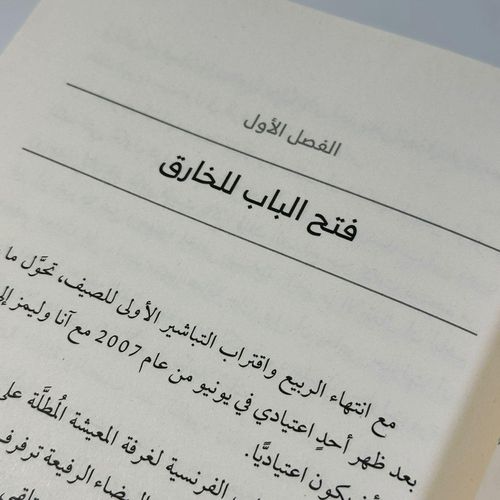 الفصل الأول
فتح الباب للخارق
مع انتهاء الربيع واقتراب التباشير الأولى للصيف، تحوَّل ما
بعد ظهر أحدٍ اعتيادي في يونيو من عام 2007 مع آنا وليمز إلى
يكون اعتياديًّا.
الفرنسية لغرفة المعيشة المُطلَّة على
البيضاء الرفيعة ترفرف